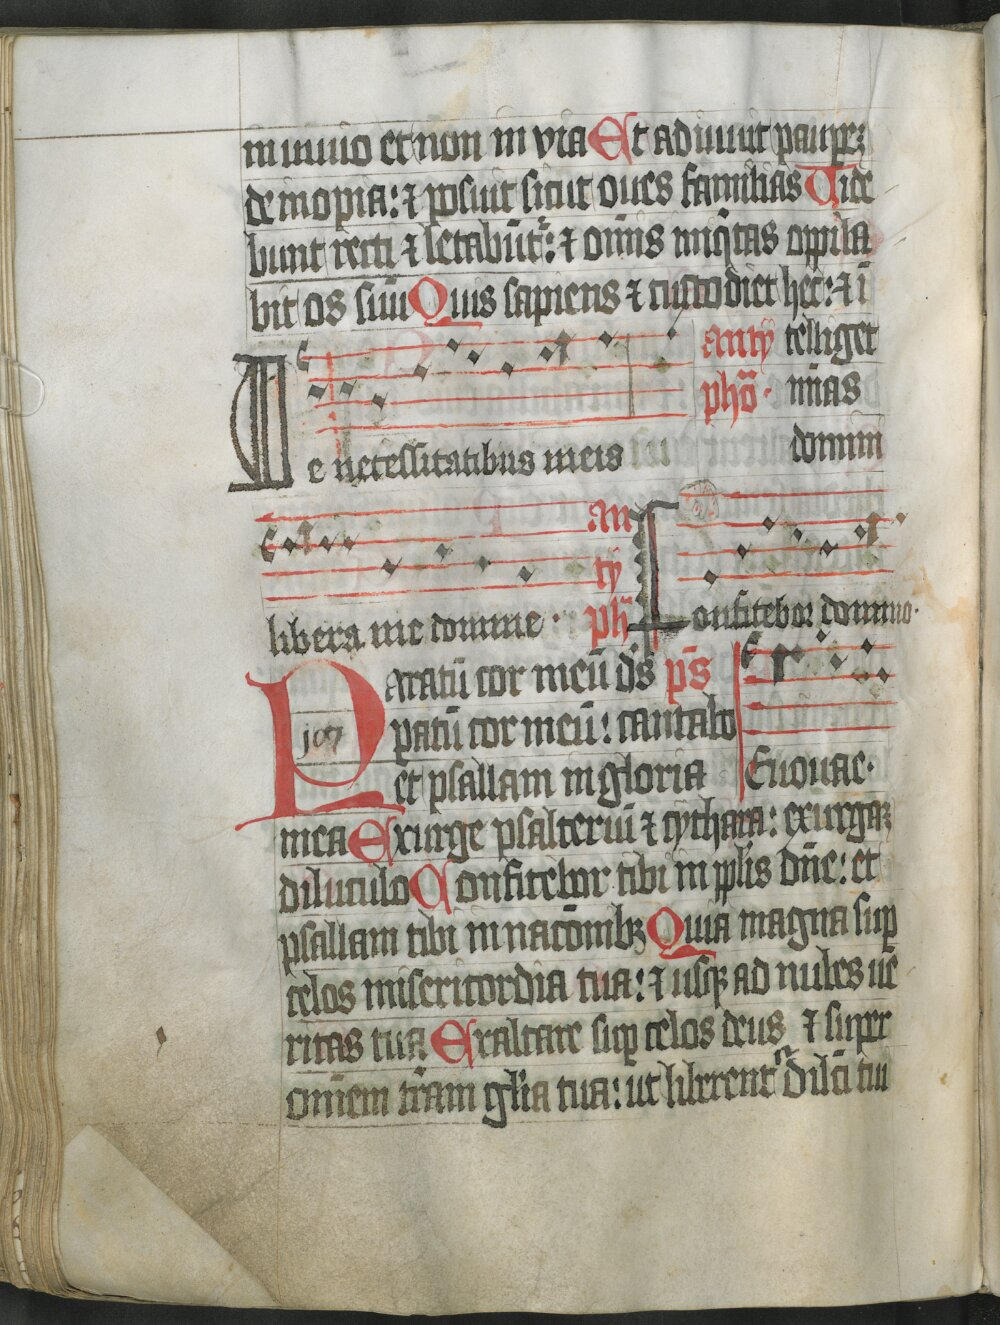 in inuio et non in via Et adiuuit paupeꝝ
de inopia: ⁊ posuit sicut oues familias Uide
bunt recti ⁊ letabūt᷑: ⁊ om̄is iniq̄tas oppila
bit os suū Quis sapiens ⁊ custodiet hec: ⁊ ī
anty telliget
pho᷑· mias
domini
De necessitatibus meis
an
ty
ph̄
libera me domine·
Confitebor domino·
Paratū cor meū ds̄ ps̄
patū cor meū: cantabo
107
et psallam in gloria Euouae·
mea Exurge psalteriū ⁊ cythara: exurgā
diluculo Confitebor tibi in pp̄lis dn̄e: et
psallam tibi in nacōnibꝫ Quia magna sup
celos misericordia tua: ⁊ usqꝫ ad nubes uē
ritas tua Exaltare sup celos deus ⁊ super
omnem tr̄am gl̄ia tua: ut liberent᷑ dilc̄i tui